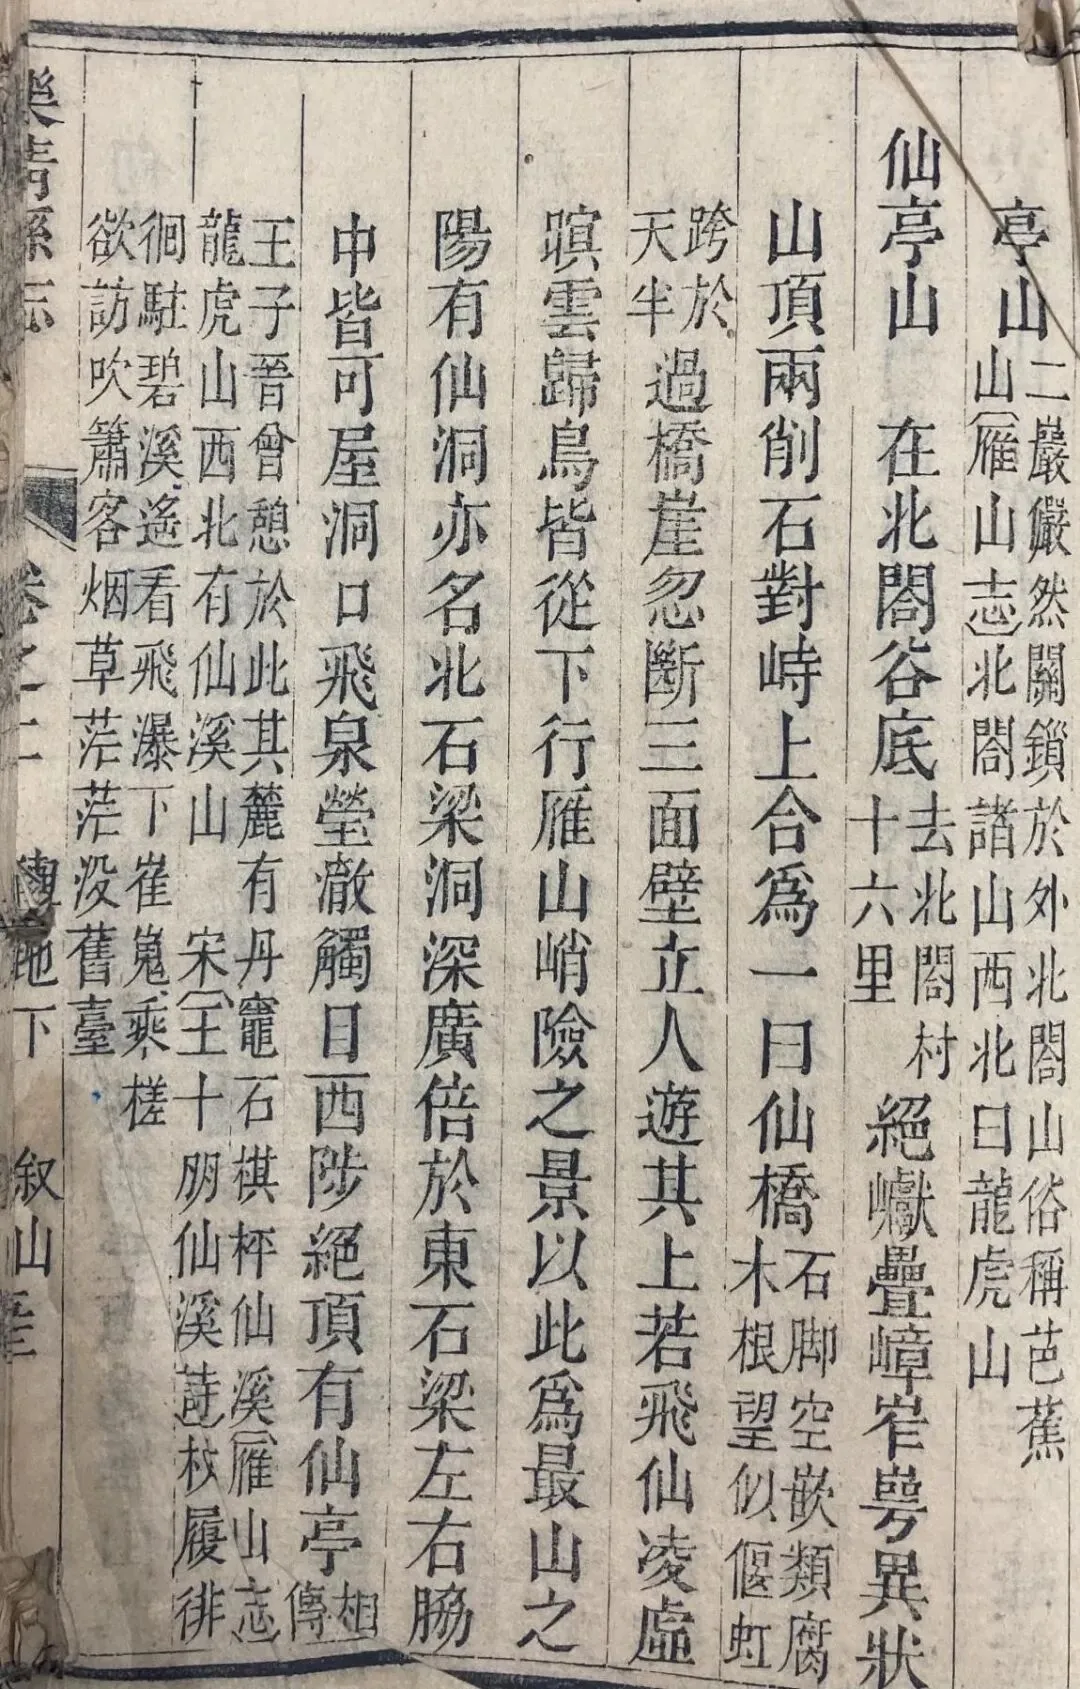 亭山二巖儼然關鎖於外北閤山俗稱芭蕉
山〔雁山志〕北閤諸山西北曰龍虎山
仙亭山　在北閤谷底去北閤村
十六里
絕巘疊嶂岝崿異狀
山頂兩削石對峙上合爲一曰仙橋石脚空嵌類腐
木根望似偃虹
跨於
天半
過橋崖忽斷三面壁立人遊其上若飛仙凌虛
暝雲歸鳥皆從下行雁山峭險之景以此爲最山之
陽有仙洞亦名北石梁洞深廣倍於東石梁左右脇
中皆可屋洞口飛泉瑩澈觸目西陟絕頂有仙亭相
傳
王子晉曾憩於此其麓有丹竈石棋枰仙溪〔雁山志〕
龍虎山西北有仙溪山　宋〔王十朋仙溪詩〕杖履徘
徊駐碧溪遙看飛瀑下崔嵬乘槎
欲訪吹簫客烟草茫茫沒舊臺
樂清縣志　卷之二　輿地下　叙山